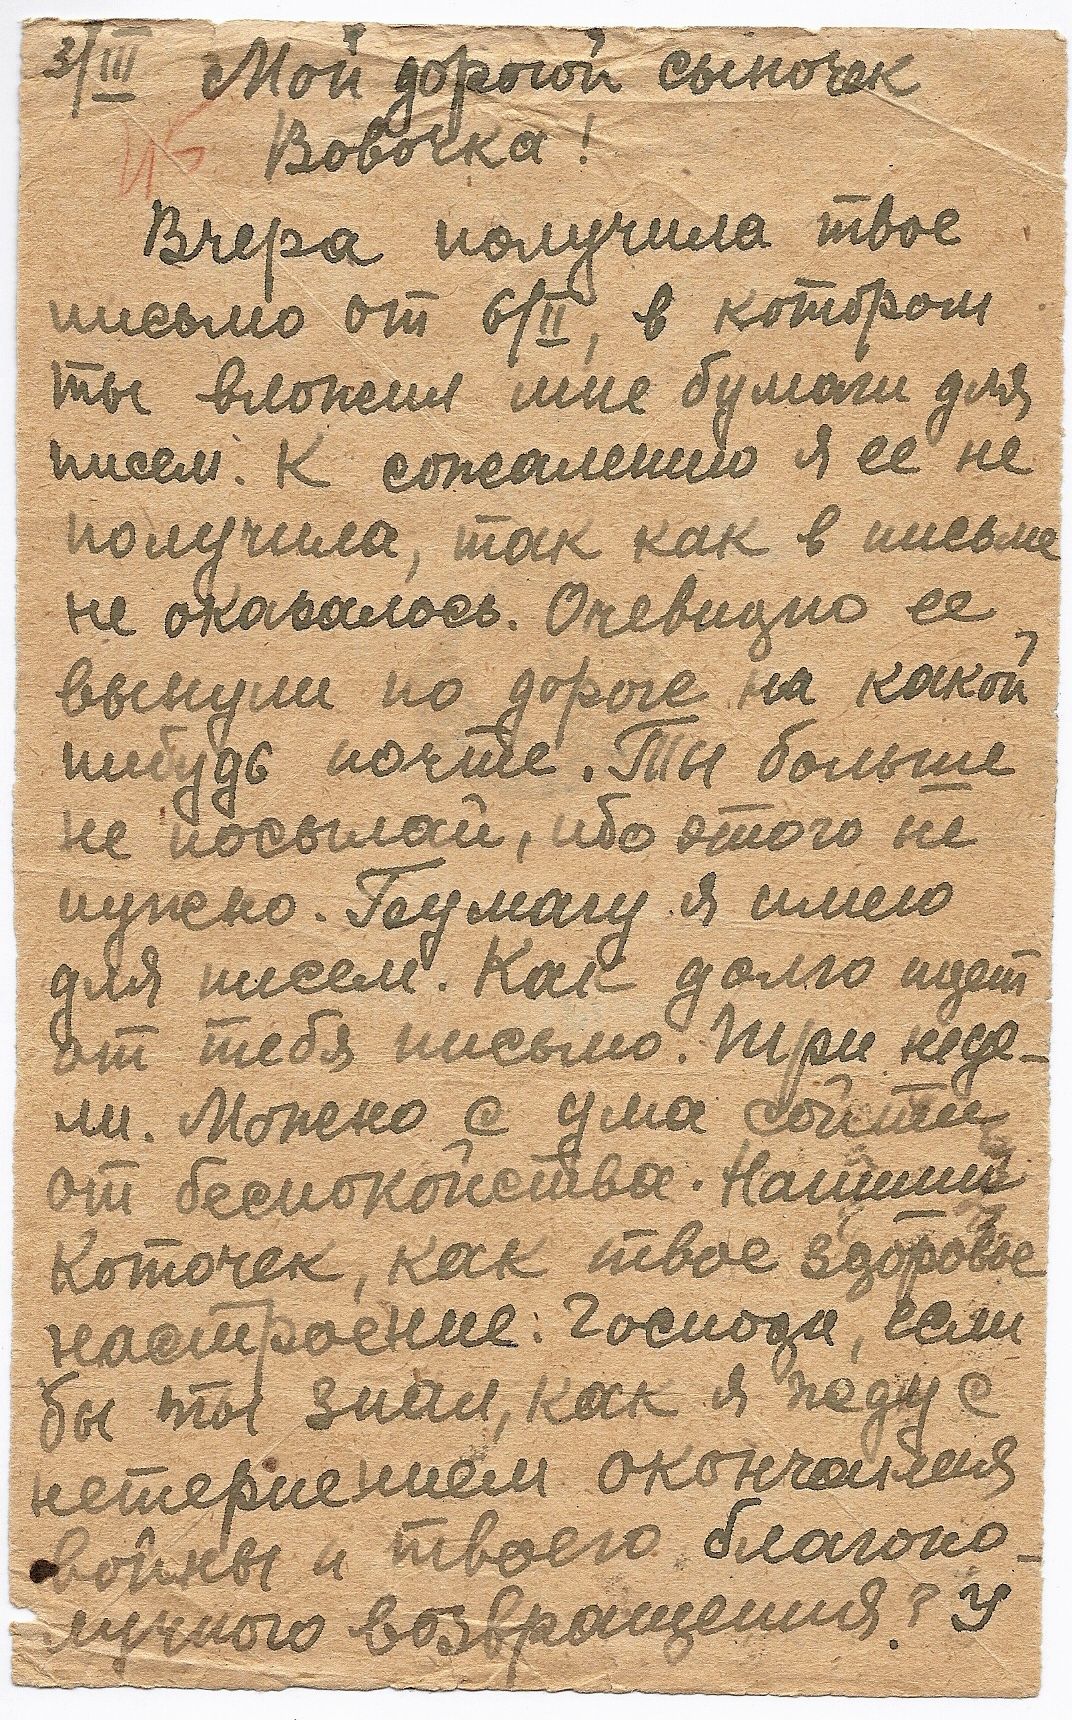 3/III Мой дорогой сыночек
45
Вовочка!
Вчера получила твое
письмо от 6/II, в котором
ты вложил мне бумаги для
писем. К сожалению я ее не
получила, так как в письме
не оказалось. Очевидно ее
вынули по дороге на какой
нибудь почте. Ты больше
не посылай, ибо этого не
нужно. Бумагу я имею
для писем. Как долго идет
от тебя письмо. Три неде-
ли. Можно с ума сойти
от беспокойства. Напиши
Коточек, как твое здоровье
настроение. Господи, если
бы ты знал, как я жду с
нетерпением окончания
войны и твоего благопо-
лучного возвращения? У